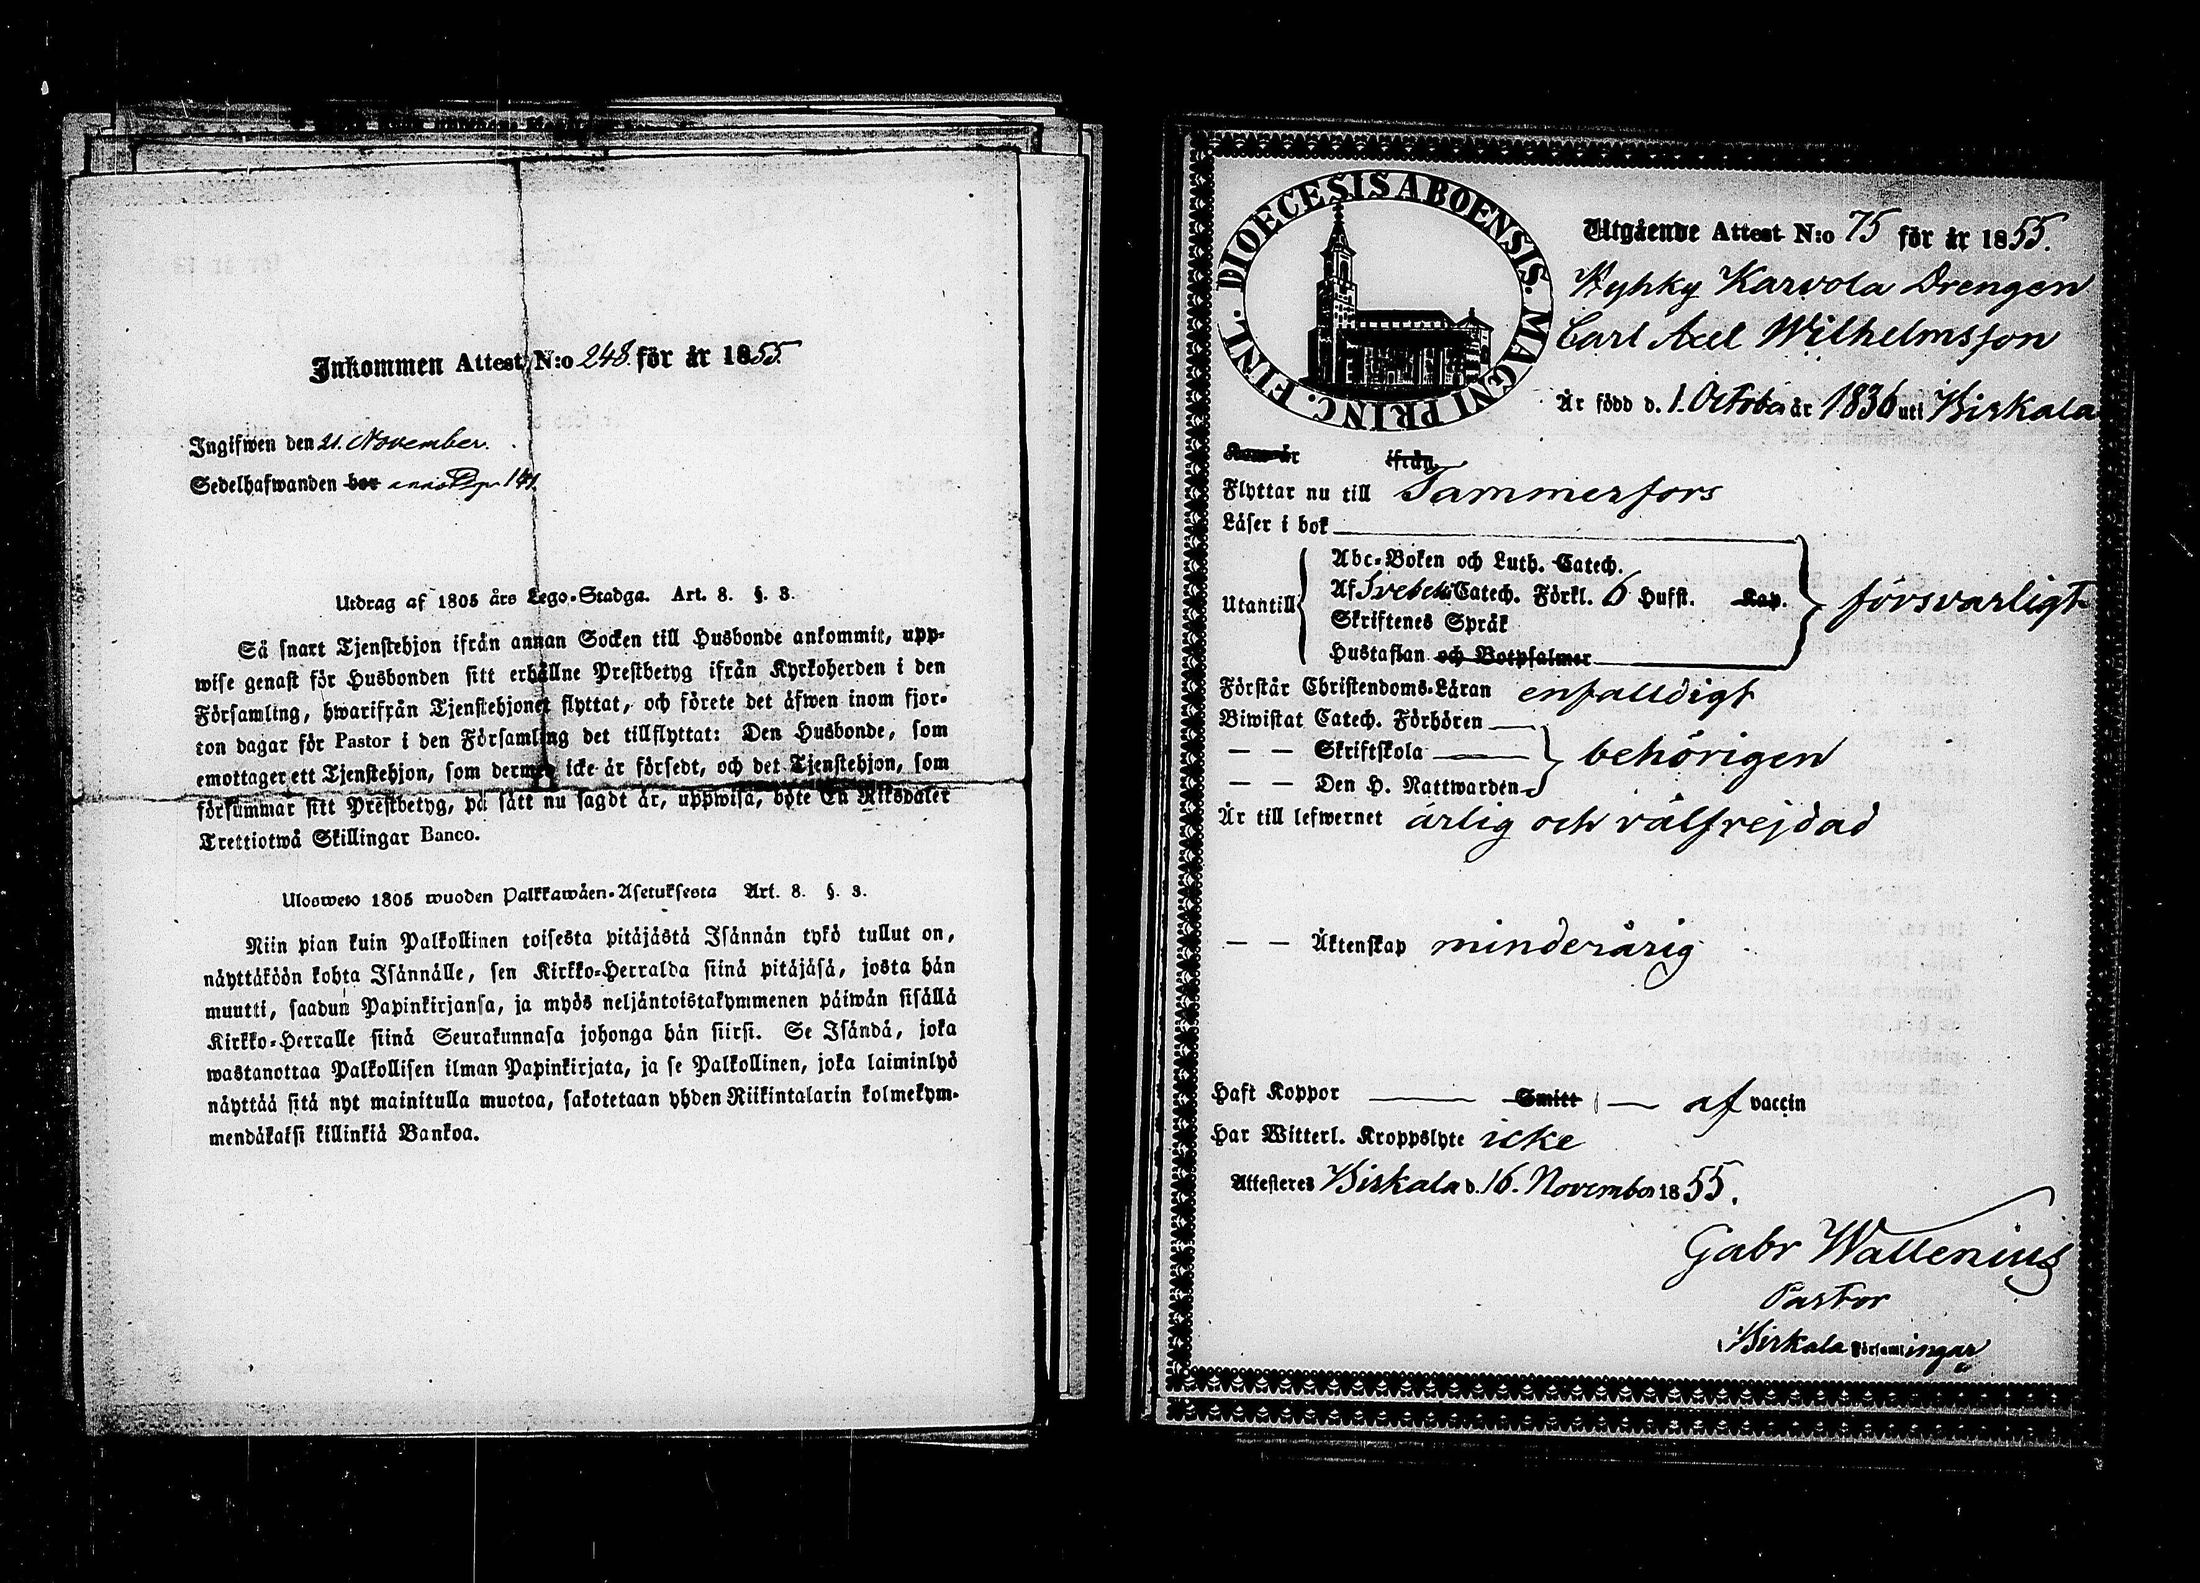 Inkommen Attest N:o 248. för år 1855.
Ingifwen den 21. November.
Sedelhafwanden bor Pag. 141.
Utdrag af 1805 års Lego-Stadga. Art. 8. §. 3.
Så snart Tjenstehjon ifrån annan Socken till Husbonde ankommit, upp-
wise genast för Husbonden sitt erhållne Prestbetyg ifrån Kyrkoherden i den
Församling, hwarifrån Tjenstehjonet flyttat, och förete det äfwen inom fjor-
ton dagar för Pastor i den Församling det tillflyttat: Den Husbonde, som
emottager ett Tjenstehjon, som dermed icke är försedt, och det Tjenstehjon, som
försummar sitt Prestbetyg, på sätt nu sagdt är, uppwisa, böte En Riksdaler
Trettiotwå Skillingar Banco.
Ulosweto 1805 wuoden Palkkawäen-Asetuksesta Art. 8. §. 3.
Niin pian kuin Palkollinen toisesta pitäjästä Isännän tykö tullut on,
näyttäköön kohta Isännälle, sen Kirkko-Herralda siinä pitäjäsä, josta hän
muutti, saadun Papinkirjansa, ja myös neljäntoistakymmenen päiwän sisällä
Kirkko-Herralle siinä Seurakunnasa johonga hän siirsi. Se Isändä, joka
wastanottaa Palkollisen ilman Papinkirjata, ja se Palkollinen, joka laiminlyö
näyttää sitä nyt mainitulla muotoa, sakotetaan yhden Riikintalarin kolmekym-
mendäkaksi killinkiä Bankoa.
DIOECESIS ABOENSIS. MAGNI PRINC. FINL.
Utgående Attest N:o 75 för år 1855.
Nyhky Karvola Drengen
Carl Axel Wilhelmsson
Är född d. 1. October år 1836 uti Birkala
Kom år ifrån
Flyttar nu till Tammerfors
Läser i bok
Utantill
Abc-Boken och Luth. Catech.
Af Svebelii Catech. Förkl. 6 Hufst. Kap.
Skriftenes Språk
Hustaflan och Botpsalmer
försvarligt
Förstår Christendoms-Läran enfalldigt
Biwistat Catech. Förhören
— — Skriftskola
— — Den H. Nattwarden
behörigen
Är till lefwernet ärlig och välfrejdad
— — Äktenskap minderårig
Haft Koppor Smitt af vaccin
Har Witterl. Kroppslyte icke
Attesteres Birkala d. 16. November 1855.
Gabr Wallenius
Pastor
Birkala Församlingar